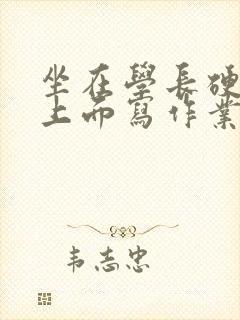 坐在學長硬
上而寫作業
韦志忠